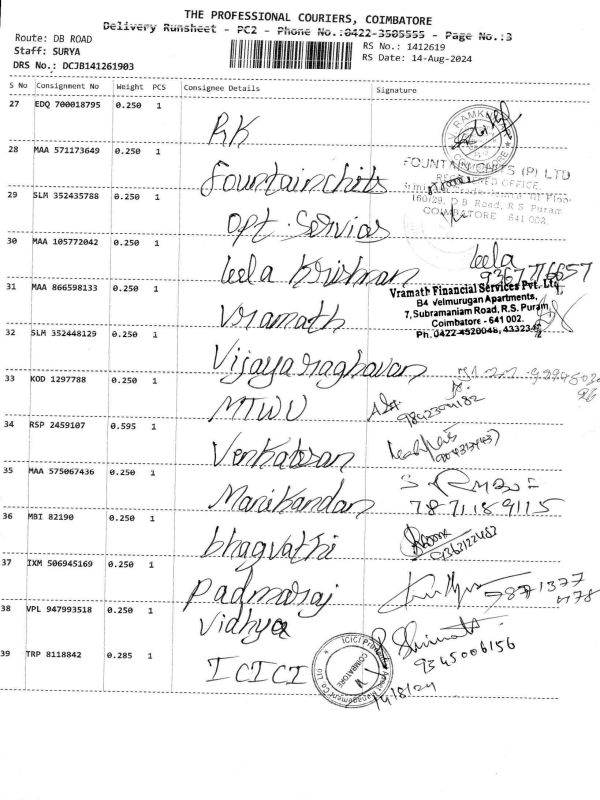 THE PROFESSIONAL COURIERS, COIMBATORE
Delivery Runsheet - PC2 - Phone No.:0422-3505555 - Page No.:3
Route: DB ROAD
Staff: SURYA
DRS No.: DCJB141261903
RS No.: 1412619
RS Date: 14-Aug-2024
S No Consignment No Weight PCS Consignee Details Signature
27 EDQ 700018795 0.250 1
RK
28 MAA 571173649 0.250 1
Fountainchits
FOUNTAIN CHITS (P) LTD
REGISTERED OFFICE.
160/29, D B Road, R.S. Puram
COIMBATORE 641 002.
29 SLM 352435788 0.250 1
Opt. Services
30 MAA 105772042 0.250 1
leela Krishnan
leela
9367776657
31 MAA 866598133 0.250 1
Vramath
Vramath Financial Services Pvt. Ltd
B4 Velmurugan Apartments,
7, Subramaniam Road, R.S. Puram,
Coimbatore - 641 002.
Ph. 0422-4520048,
32 SLM 352448129 0.250 1
Vijayaraghavan
33 KOD 1297788 0.250 1
MTWU
34 RSP 2459107 0.595 1
Venkatesan
35 MAA 575067436 0.250 1
Manikandan
7871189115
36 MBI 82190 0.250 1
bhagvathi
37 IXM 506945169 0.250 1
Padmaraj
38 VPL 947993518 0.250 1
Vidhya
9345006156
39 TRP 8118842 0.285 1
ICICI
COIMBATORE
14/8/24